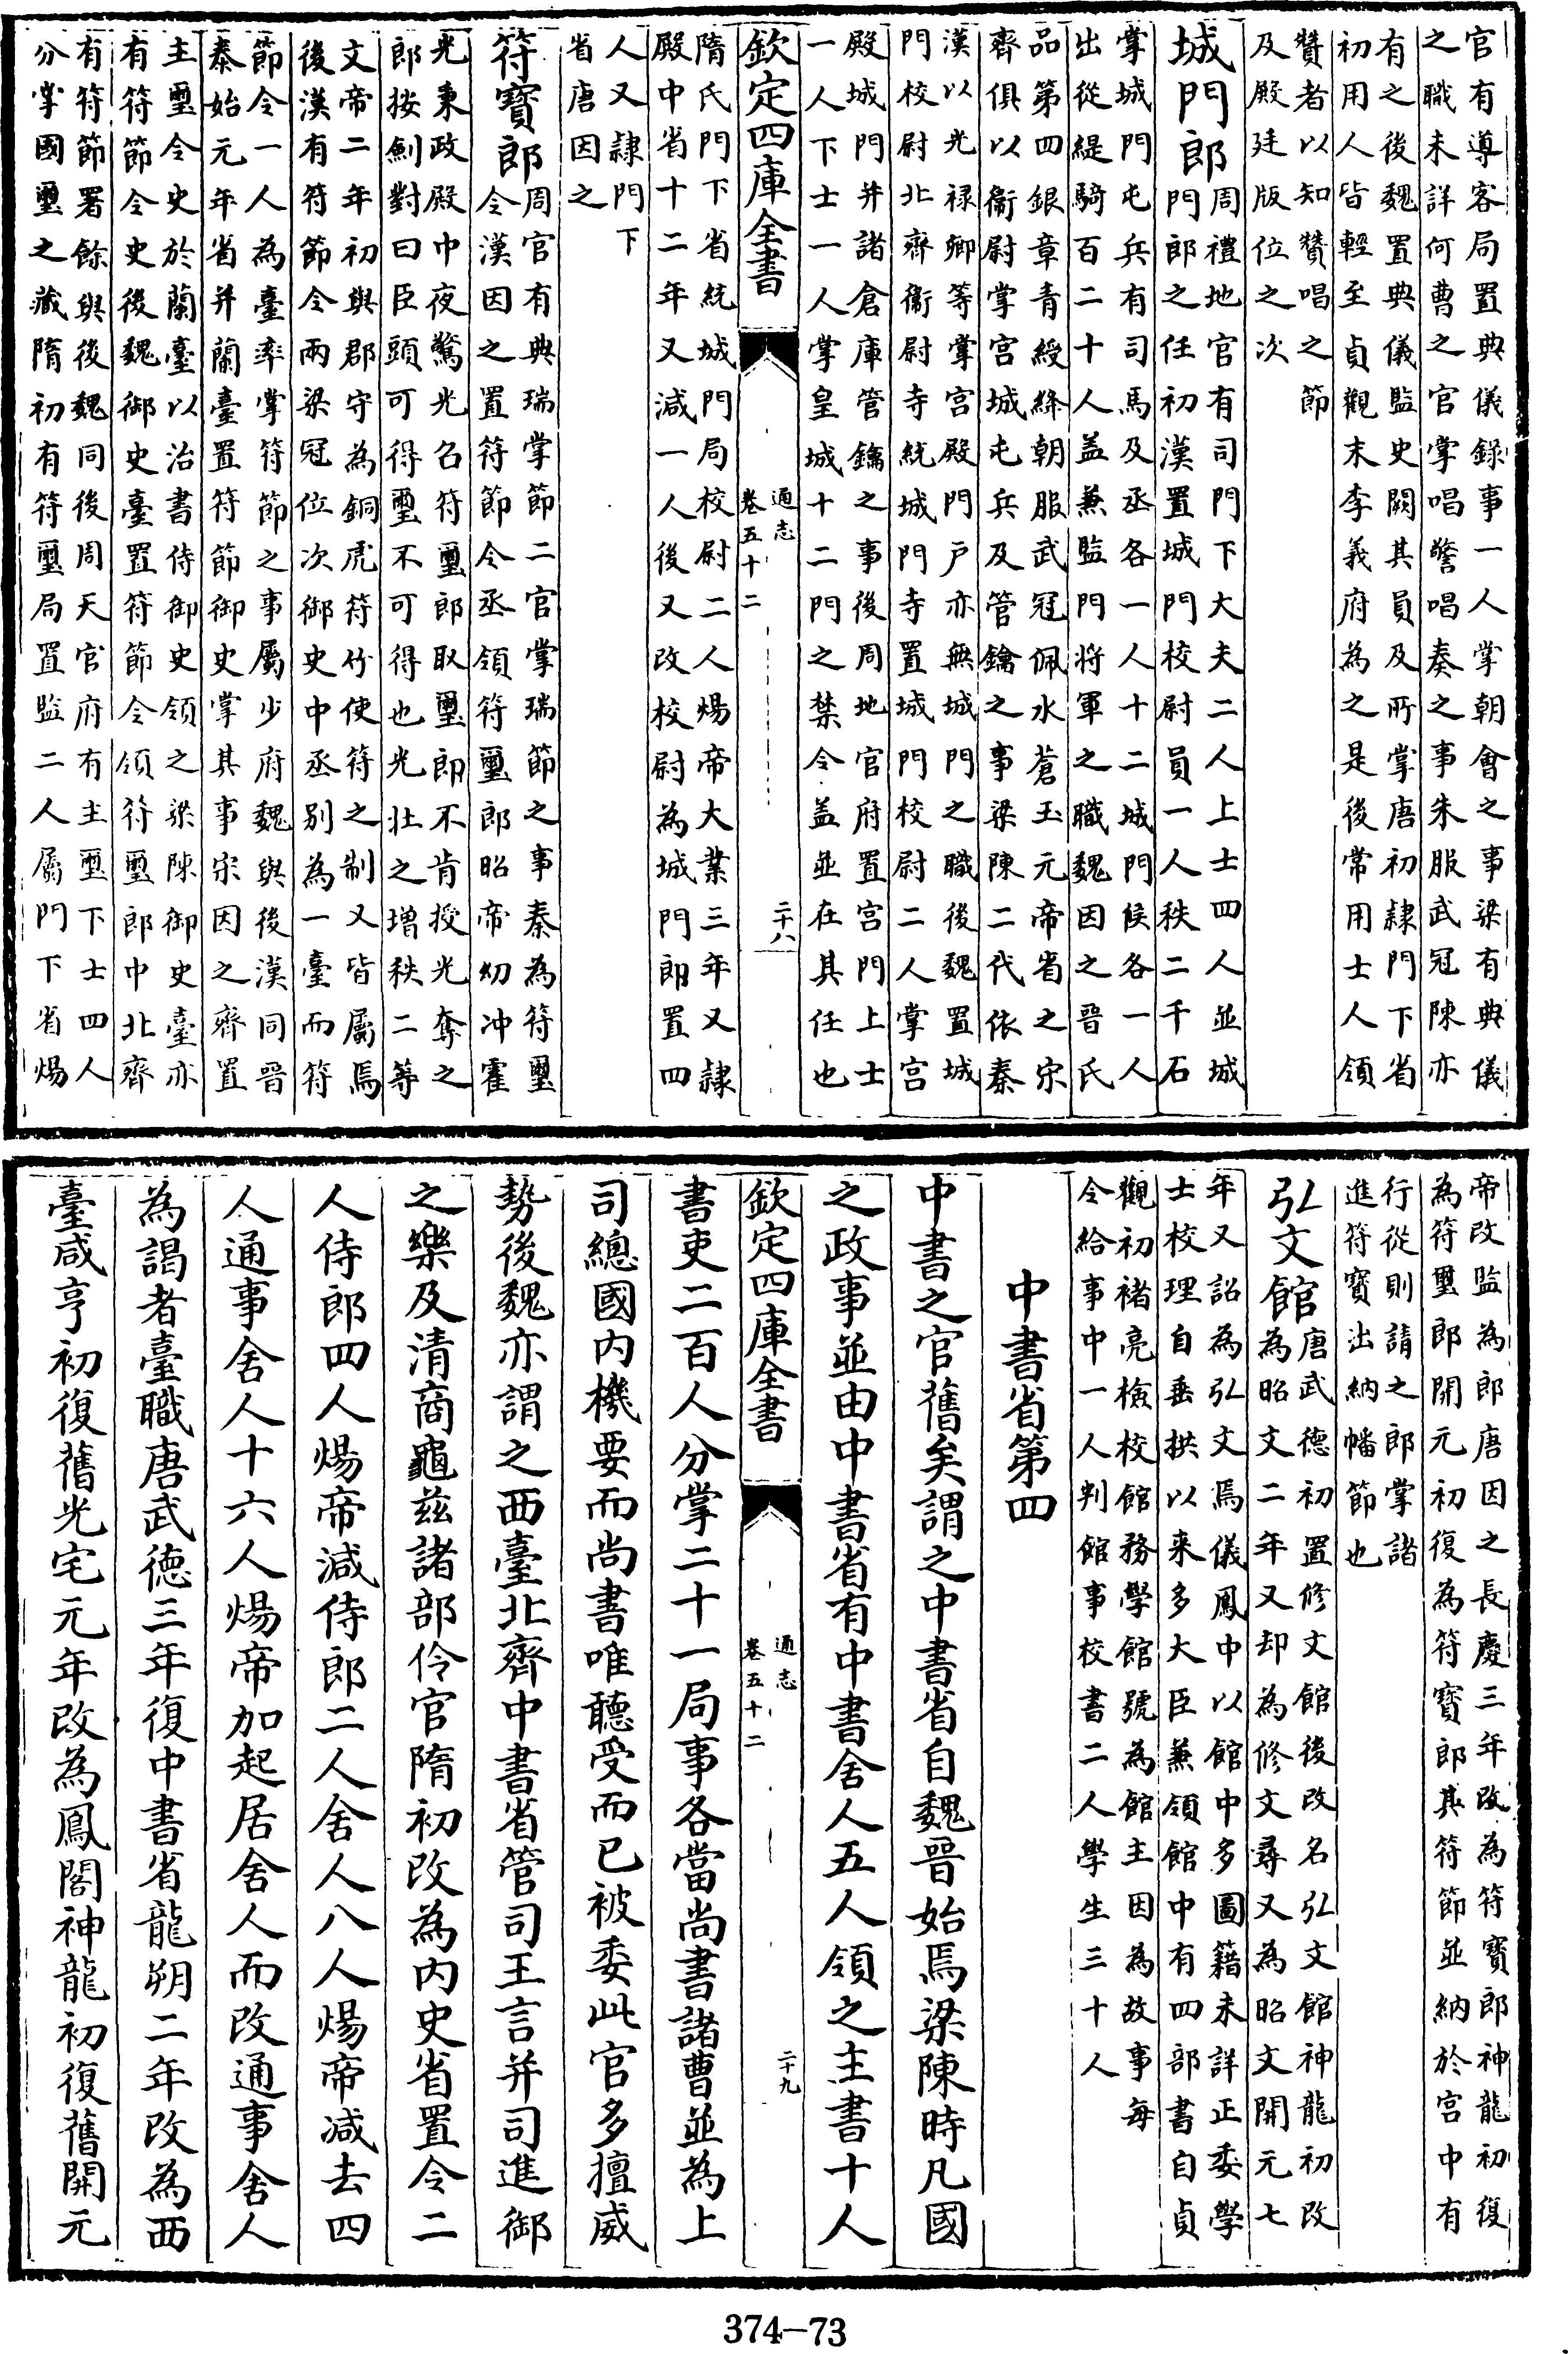 官有導客局置典儀錄事一人掌朝會之事梁有典儀
之職未詳何曹之官掌唱警唱奏之事朱服武冠陳亦
有之後魏置典儀監史闕其員及所掌唐初隷門下省
初用人皆輕至貞觀末李義府為之是後常用士人領
贊者以知贊唱之節
及殿廷版位之次
城門郎
周禮地官有司門下大夫二人上士四人並城
門郎之任初漢置城門校尉員一人秩二千石
掌城門屯兵有司馬及丞各一人十二城門候各一人
出從緹騎百二十人盖兼監門將軍之職魏因之晉氏
品第四銀章青綬絳朝服武冠佩水蒼玉元帝省之宋
齊俱以衞尉掌宫城屯兵及管鑰之事梁陳二代依秦
漢以光禄卿等掌宫殿門户亦無城門之職後魏置城
門校尉北齊衞尉寺統城門寺置城門校尉二人掌宫
殿城門并諸倉庫管鑰之事後周地官府置宫門上士
一人下士一人掌皇城十二門之禁令盖並在其任也
欽定四庫全書
通志
卷五十二
二十八
隋氏門下省統城門局校尉二人煬帝大業三年又隷
殿中省十二年又減一人後又改校尉為城門郎置四
人又隷門下
省唐因之
符寶郎
周官有典瑞掌節二官掌瑞節之事秦為符璽
令漢因之置符節令丞領符璽郎昭帝幼冲霍
光秉政殿中夜驚光召符璽郎取璽郎不肯授光奪之
郎按劒對曰臣頭可得璽不可得也光壮之增秩二等
文帝二年初與郡守為銅虎符竹使符之制又皆屬焉
後漢有符節令兩梁冠位次御史中丞别為一臺而符
節令一人為臺率掌符節之事屬少府魏與後漢同晉
泰始元年省并蘭臺置符節御史掌其事宋因之齊置
主璽令史於蘭臺以治書侍御史領之梁陳御史臺亦
有符節令史後魏御史臺置符節令領符璽郎中北齊
有符節署餘與後魏同後周天官府有主璽下士四人
分掌國璽之藏隋初有符璽局置監二人屬門下省煬
帝改監為郎唐因之長慶三年改為符寳郎神龍初復
為符璽郎開元初復為符寳郎其符節並納於宫中有
行從則請之郎掌諸
進符寶出納幡節也
弘文館
唐武德初置修文館後改名弘文館神龍初改
為昭文二年又却為修文尋又為昭文開元七
年又詔為弘文焉儀鳳中以館中多圖籍未詳正委學
士校理自垂拱以来多大臣兼領館中有四部書自貞
觀初褚亮檢校館務學館號為館主因為故事每
令給事中一人判館事校書二人學生三十人
中書省第四
中書之官舊矣謂之中書省自魏晉始焉梁陳時凡國
之政事並由中書省有中書舍人五人領之主書十人
欽定四庫全書
通志
卷五十二
二十九
書吏二百人分掌二十一局事各當尚書諸曹並為上
司總國内機要而尚書唯聽受而已被委此官多擅威
勢後魏亦謂之西臺北齊中書省管司王言并司進御
之樂及清商龜茲諸部伶官隋初改為内史省置令二
人侍郎四人煬帝減侍郎二人舍人八人煬帝減去四
人通事舍人十六人煬帝加起居舍人而改通事舍人
為謁者臺職唐武徳三年復中書省龍朔二年改為西
臺咸亨初復舊光宅元年改為鳳閣神龍初復舊開元
374-73